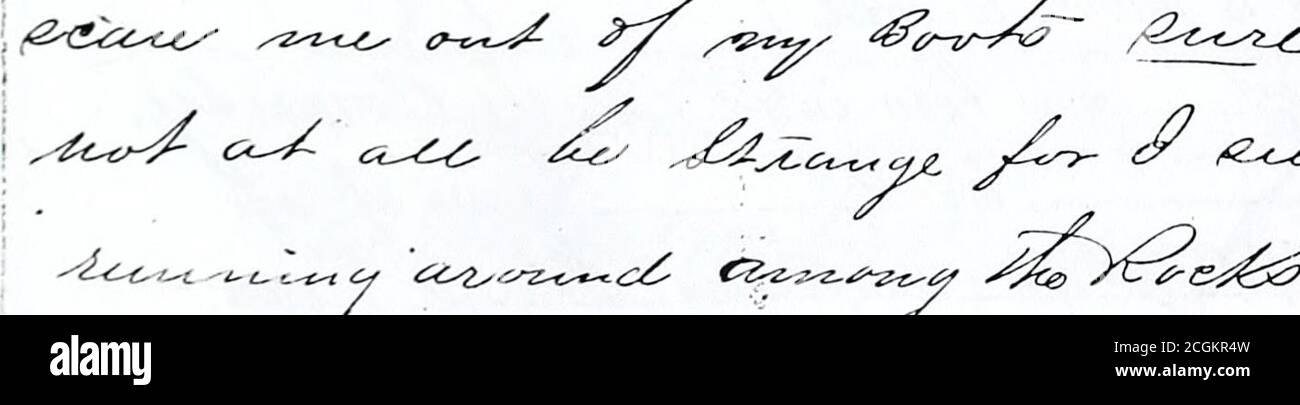 scare me out of my Boots sure
not at all be Strange for I
running around among the Rocks
alamy
Image ID: 2CGKR4W
www.alamy.com